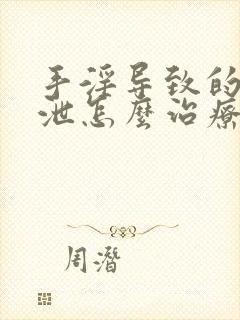 手淫导致的
泄怎麼治療
周潛